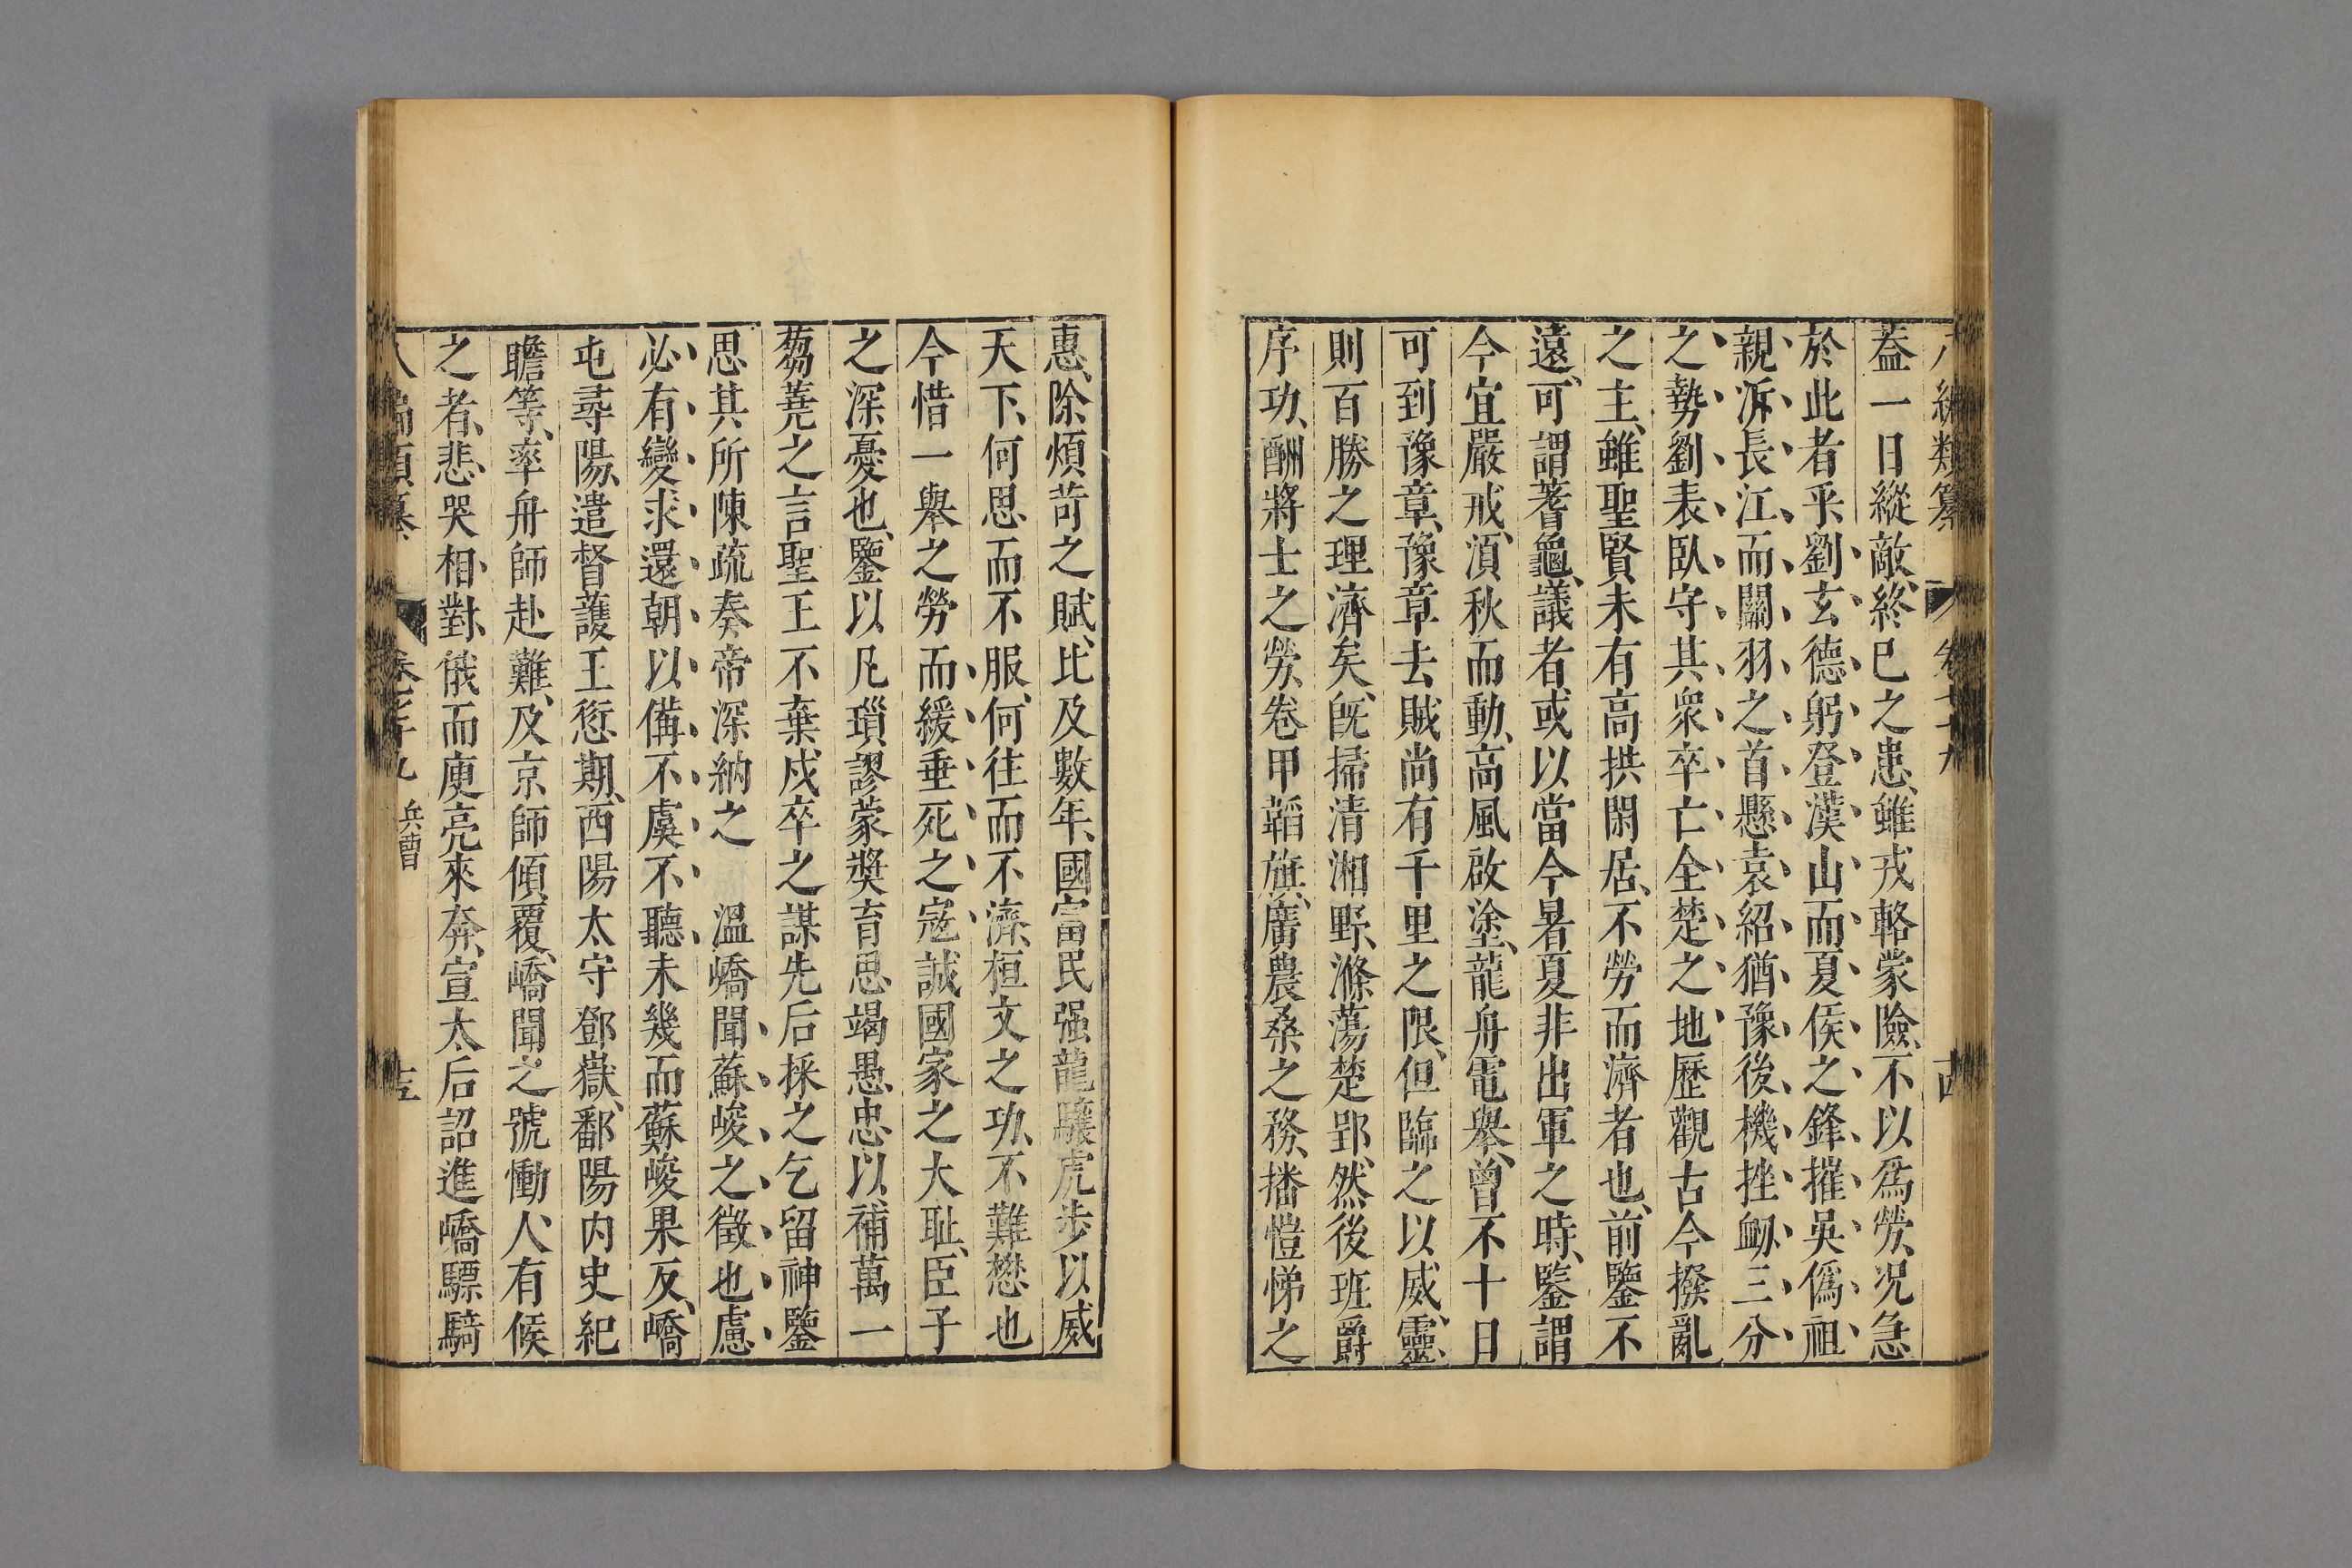 八編類纂 卷七十九 古
蓋一日縱敵終已之患雖戎輅蒙險不以爲勞况急
於此者乎劉玄德躬登漢山而夏侯之鋒摧吳僞祖
親泝長江而關羽之首懸袁紹猶豫後機挫衂三分
之勢劉表臥守其衆卒亡全楚之地歷觀古今撥亂
之主雖聖賢未有高拱閑居不勞而濟者也前鑒不
遠可謂蓍龜議者或以當今暑夏非出軍之時鑒謂
今宜嚴戒湏秋而動高風啟塗龍舟電舉曾不十日
可到豫章豫章去賊尚有千里之限但臨之以威靈
則百勝之理濟矣旣掃清湘野滌蕩楚郢然後班爵
序功酬將士之勞卷甲韜旗廣農桑之務播愷悌之
惠除煩苛之賦比及數年國富民强龍驤虎步以威
天下何思而不服何往而不濟桓文之功不難懋也
今惜一舉之勞而緩垂死之寇誠國家之大耻臣子
之深憂也鑒以凡瑣謬蒙奬育思竭愚忠以補萬一
蒭蕘之言聖王不棄戍卒之謀先后採之乞留神鑒
思其所陳疏奏帝深納之 溫嶠聞蘇峻之徵也慮
必有變求還朝以備不虞不聽未幾而蘇峻果反嶠
屯尋陽遣督護王愆期西陽太守鄧嶽鄱陽内史紀
瞻等率舟師赴難及京師傾覆嶠聞之號慟人有候
之者悲哭相對俄而庾亮來奔宣太后詔進嶠驃騎
八編類纂 卷七十九 兵曹 十五